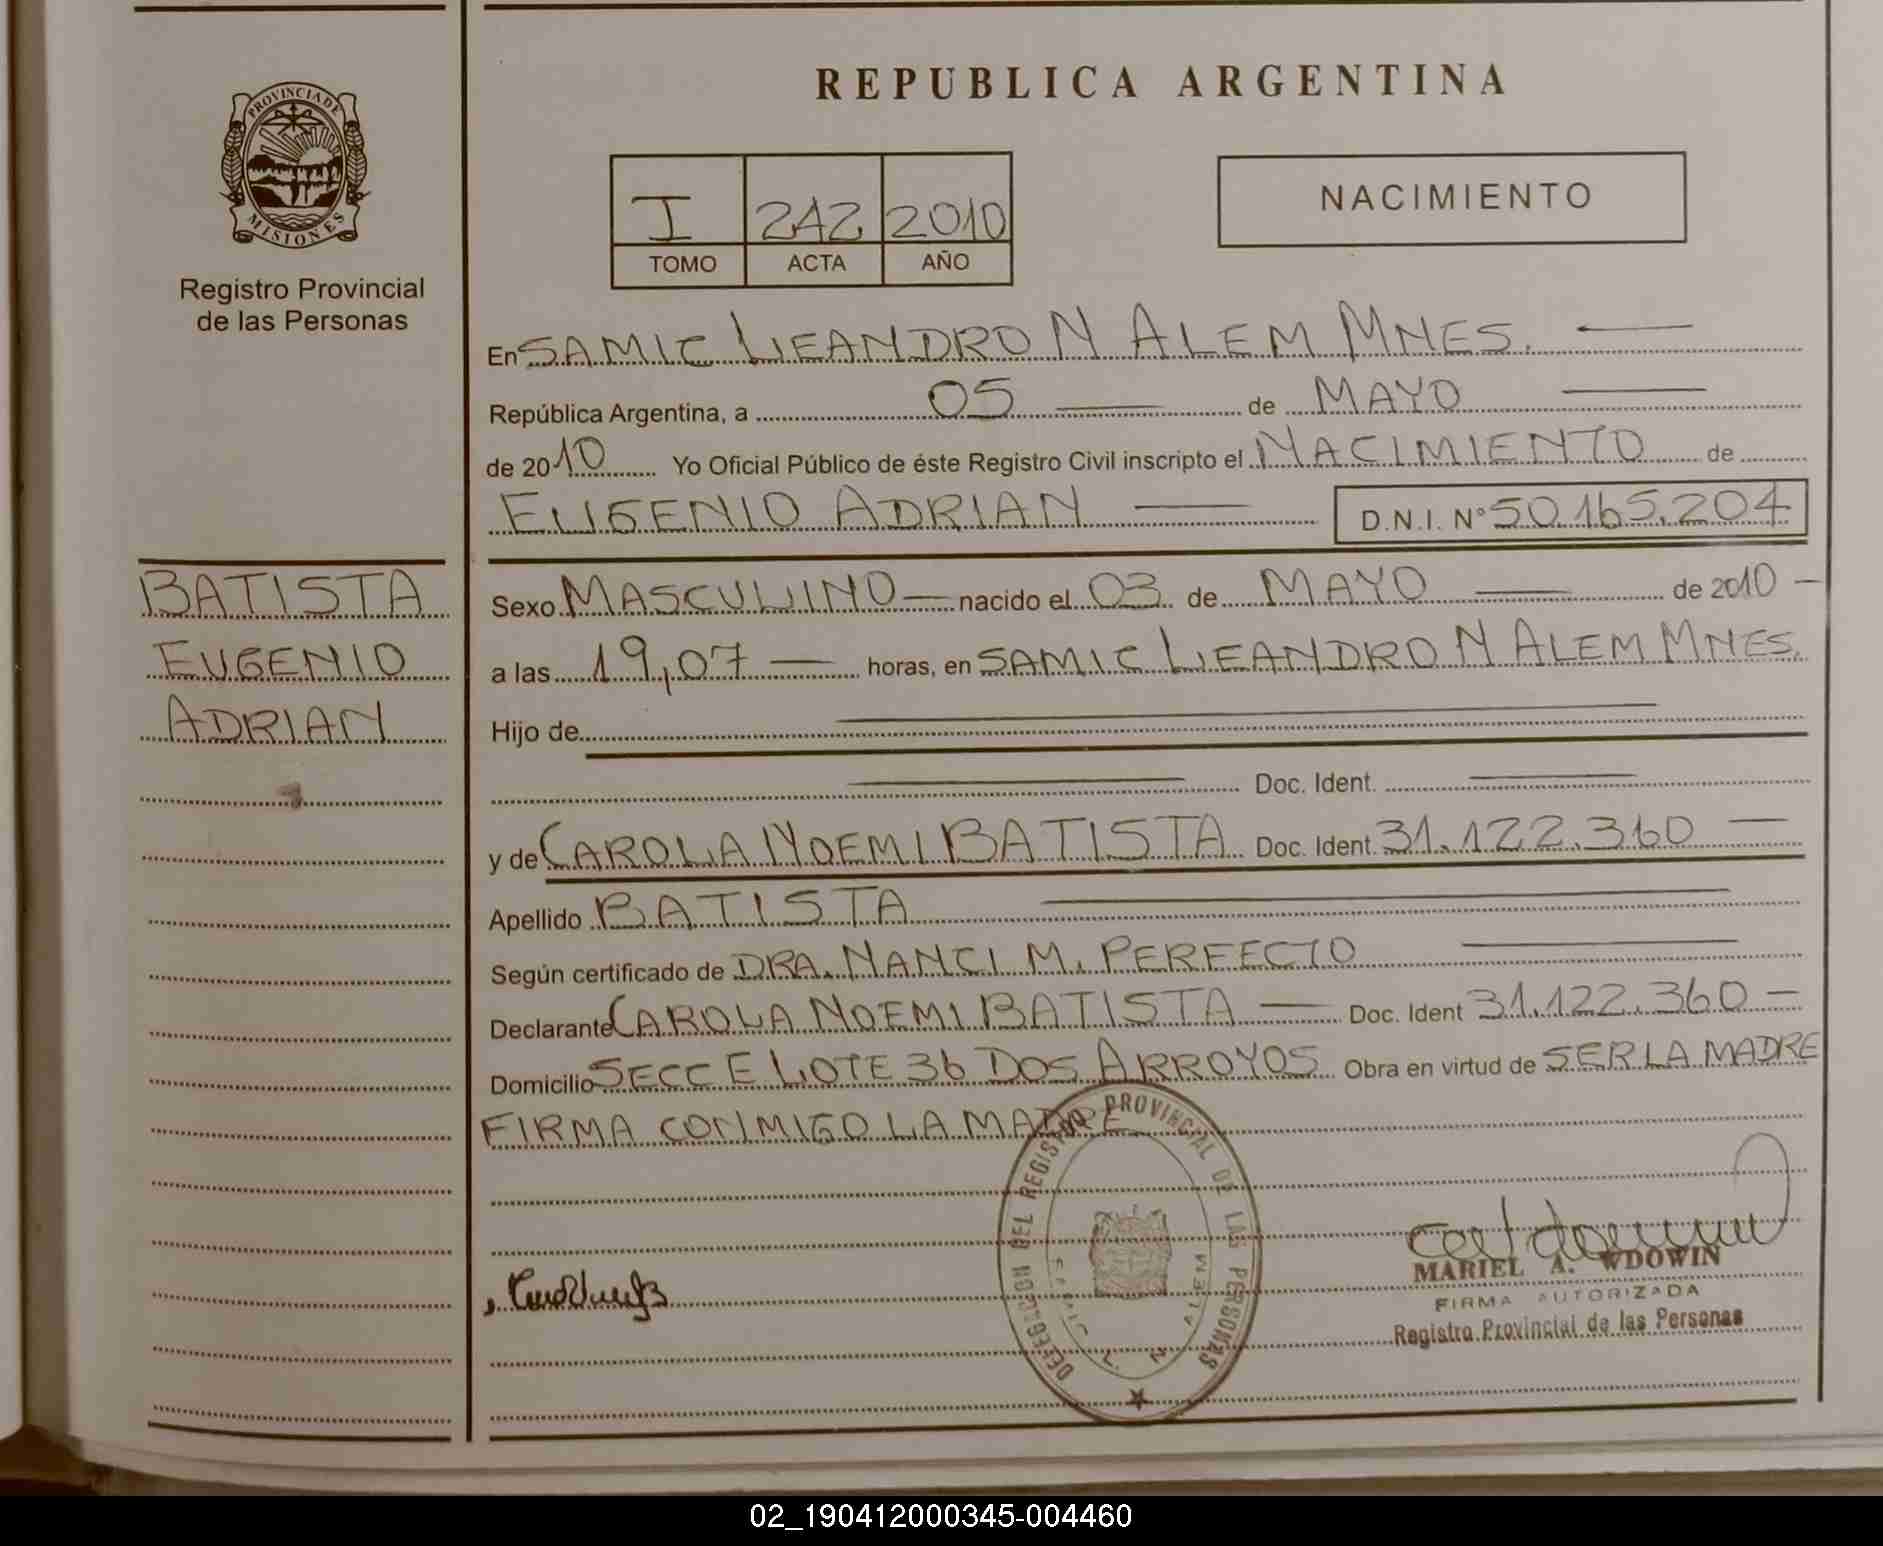 REPUBLICA ARGENTINA
PROVINCIA DE
MISIONES
Registro Provincial
de las Personas
I 242 2010
TOMO ACTA AÑO
NACIMIENTO
En SAMIC LEANDRO N ALEM MNES.
República Argentina, a 05 de MAYO
de 2010 Yo Oficial Público de éste Registro Civil inscripto el NACIMIENTO de
EUGENIO ADRIAN D.N.I. N° 50.165.204
BATISTA
EUGENIO
ADRIAN
Sexo MASCULINO nacido el 03 de MAYO de 2010
a las 19,07 horas, en SAMIC LEANDRO N ALEM MNES.
Hijo de
Doc. Ident.
y de CAROLA NOEMI BATISTA Doc. Ident. 31.122.360
Apellido BATISTA
Según certificado de DRA. NANCI M. PERFECTO
Declarante CAROLA NOEMI BATISTA Doc. Ident 31.122.360
Domicilio SECC E LOTE 36 DOS ARROYOS Obra en virtud de SER LA MADRE
FIRMA CONMIGO LA MADRE
DEL REGISTRO PROVINCIAL DE LAS PERSONAS
L. N. ALEM
MARIEL A. WDOWIN
FIRMA AUTORIZADA
Registro Provincial de las Personas
02_190412000345-004460